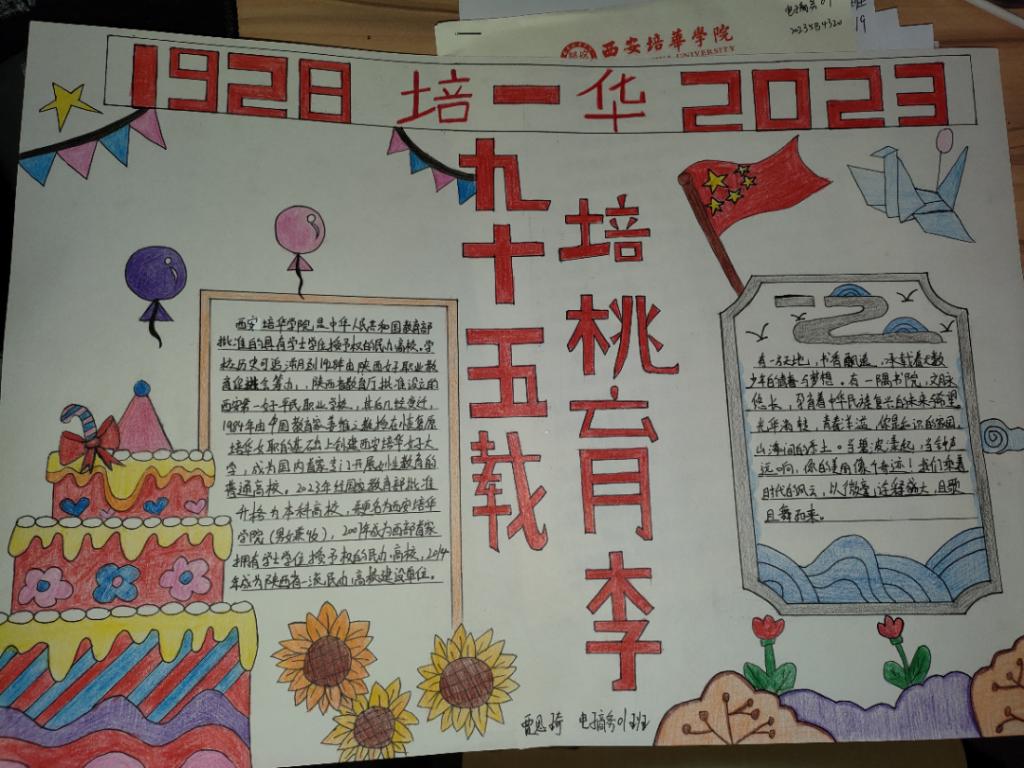 西安培華學院
1928 培一华 2023
九十五载
培桃育李
西安培华学院是中华人民共和国教育部
批准的具有学士学位授予权的民办高校。学
校历史可追溯到1928年由陕西妇女职业教
陕西省教育厅批准设立的
西安第一女子平民职业学校
1984年由中国教育家姜维之教授在恢复原
培华女职的基础上创建西安培华女子大
学，成为国内首家专门开展女性教育的
普通高校。2023年经国家教育部批准
升格为本科高校，更名为西安培华
学院（男女兼收），2007年成为西部首家
拥有学士学位授予权的民办高校，2014
年成为陕西省一流民办高校建设单位。
有一方天地，书香飘逸，承载着无数
少年的青春与梦想。有一隅书院，文脉
悠长，孕育着中华民族复兴的未来希望
光华海韵，青春洋溢，你是知识的家园，
山海间的净土。当碧波漾起，当钟声
远响，你的美丽像个奇迹！我们乘着
时代的风云，以微毫诠释盛大，且歌
且舞而来。
电子商务01班